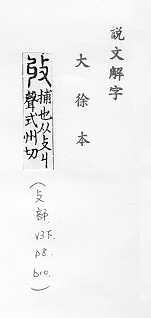 說文解字
大徐本
收
捕也从攴丩
聲式州切
(攴部.V3下.p8.b10.)